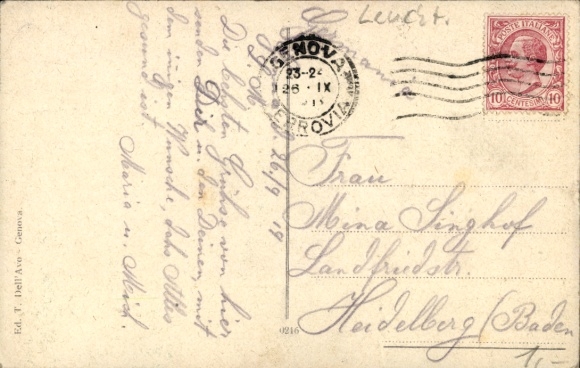 Leucht.
Germania
POSTE ITALIANE
10 CENTESIMI 10
GENOVA
23-24
26 · IX
FERROVIA
26/9 19
Die besten Grüße von hier
senden Dir u. den Deinen, mit
dem innigen Wunsche, daß Alles
gesund ist.
Maria u.
Frau
Mina Singhof
Landfriedstr.
Heidelberg / Baden
1,-
0216
Ed. T. Dell'Avo - Genova.